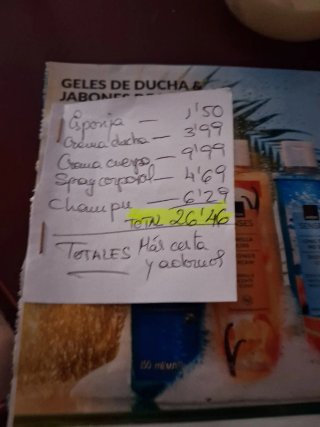 GELES DE DUCHA &
JABONES DE
Esponja — 1'50
Crema ducha — 3'99
Crema cuerpo — 9'99
Spray corporal — 4'69
Champu — 6'29
TOTAL 26'46
TOTALES Más cesta
y adornos
SENSES
150 ml